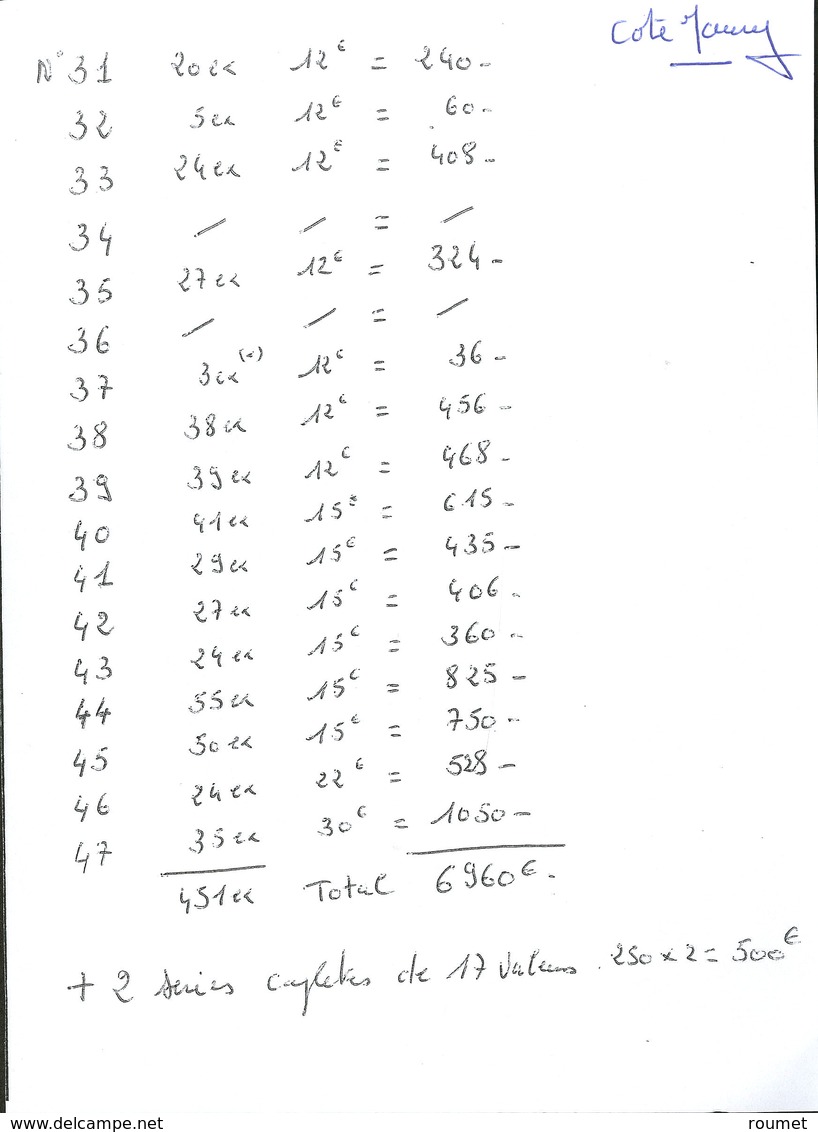 Cote Maury
N° 31 20 ex 12€ = 240 -
32 5 ex 12€ = 60 -
33 24 ex 12€ = 408 -
34 / / = /
35 27 ex 12€ = 324 -
36 / / = /
37 3 ex (-) 12€ = 36 -
38 38 ex 12€ = 456 -
39 39 ex 12€ = 468 -
40 41 ex 15€ = 615 -
41 29 ex 15€ = 435 -
42 27 ex 15€ = 406 -
43 24 ex 15€ = 360 -
44 55 ex 15€ = 825 -
45 50 ex 15€ = 750 -
46 24 ex 22€ = 528 -
47 35 ex 30€ = 1050 -
451 ex Total 6960€ -
+ 2 series capletes de 17 valeurs . 250 x 2 = 500€
www.delcampe.net
roumet